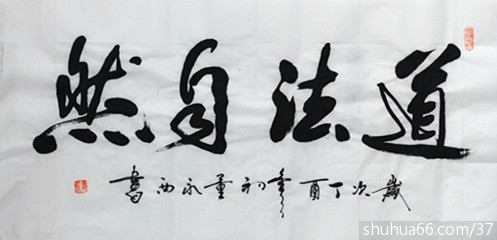 道法自然
歲次丁酉初永西書
shuhua66.com/37